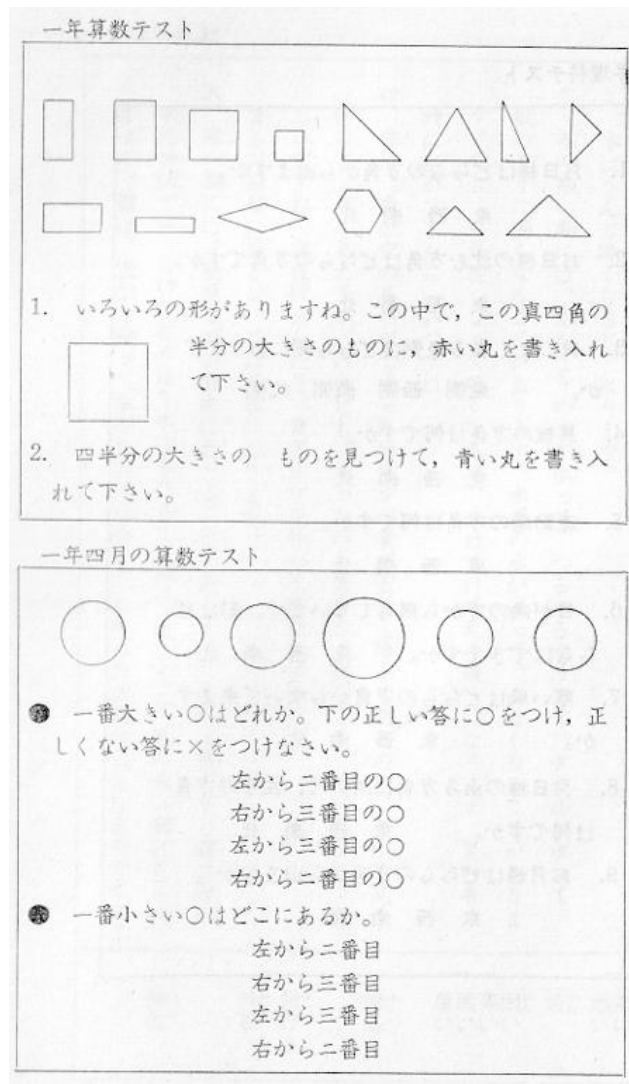 一年算数テスト
1. いろいろの形がありますね。この中で,この真四角の
半分の大きさのものに,赤い丸を書き入れ
て下さい。
2. 四半分の大きさの ものを見つけて,青い丸を書き入
れて下さい。
一年四月の算数テスト
一番大きい○はどれか。下の正しい答に○をつけ,正
しくない答に×をつけなさい。
左から二番目の○
右から三番目の○
左から三番目の○
右から二番目の○
一番小さい○はどこにあるか。
左から二番目
右から三番目
左から三番目
右から二番目